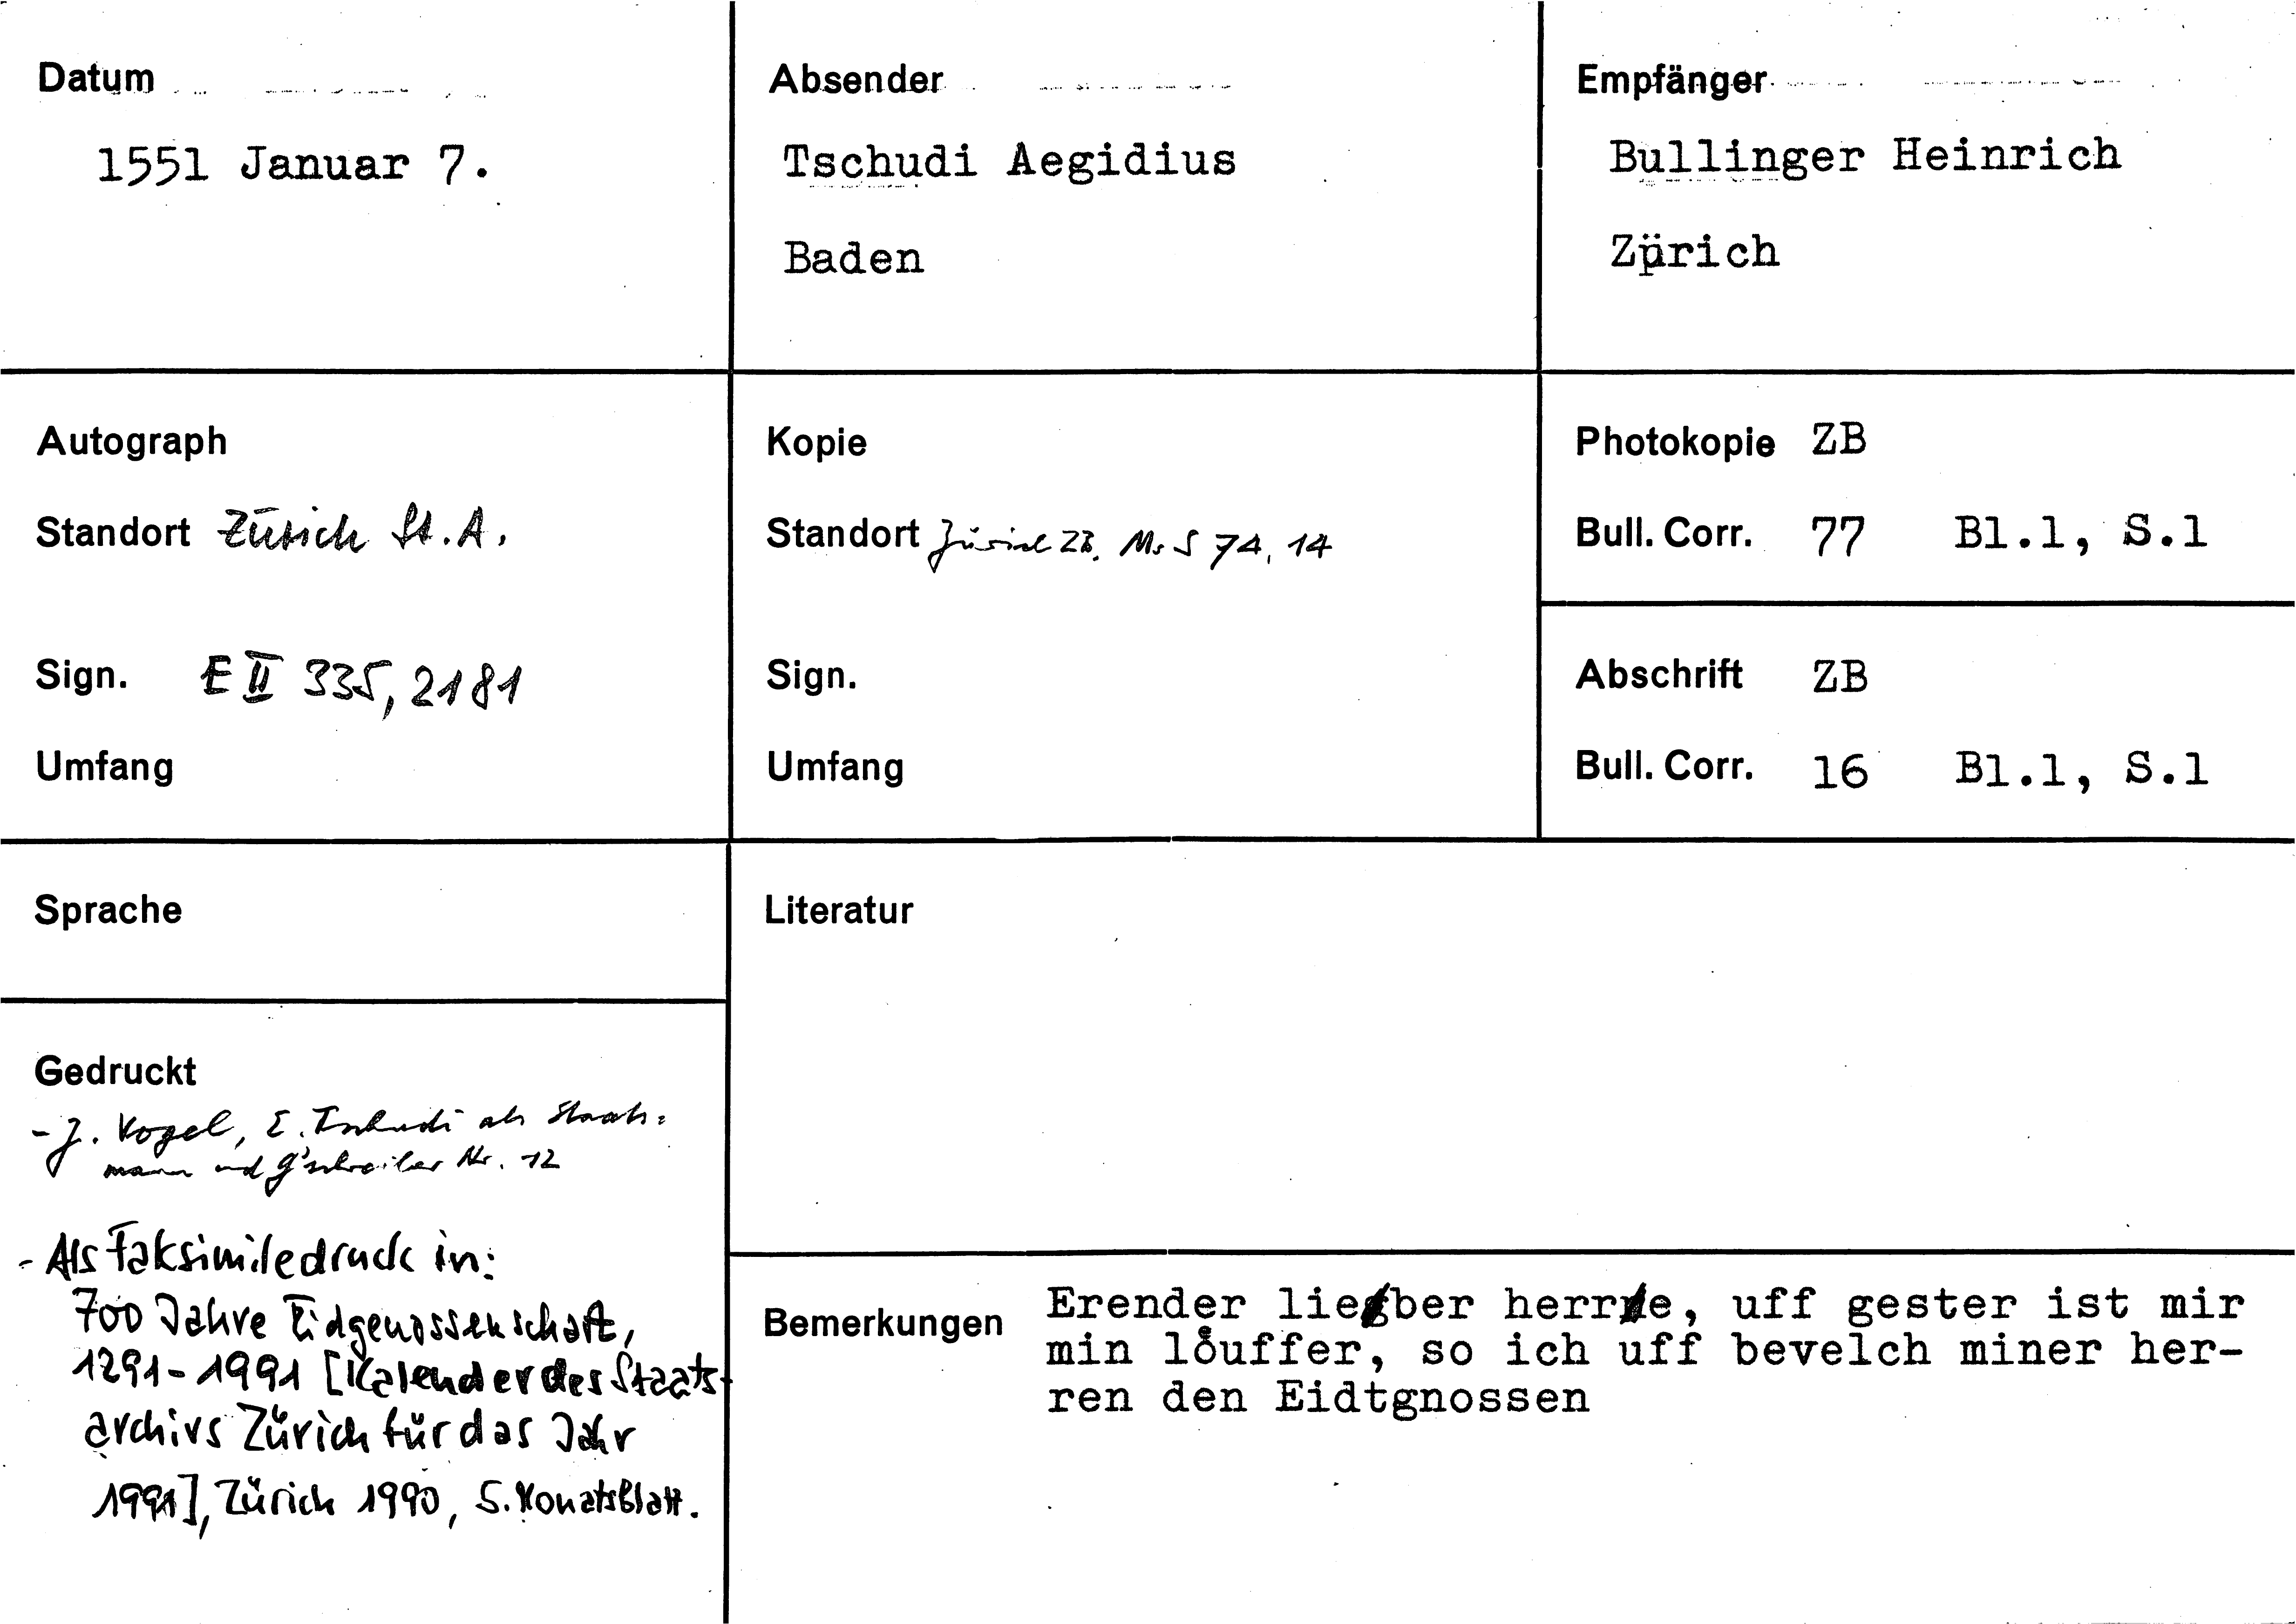 Datum
1551 Januar 7.
Absender
Tschudi Aegidius
Baden
Empfänger
Bullinger Heinrich
Zürich
Autograph
Standort Zürich St. A.
Sign. E II 335, 2181
Umfang
Kopie
Standort Zürich ZB, Ms S 74, 14
Sign.
Umfang
Photokopie ZB
Bull. Corr. 77 Bl.1, S.1
Abschrift ZB
Bull. Corr. 16 Bl.1, S.1
Sprache
Gedruckt
- J. Vogel, E. Tschudi als Staats=
mann und G'schreiber Nr. 12
- Als Faksimiledruck in:
700 Jahre Eidgenossenschaft,
1291-1991 [Kalender des Staats-
archivs Zürich für das Jahr
1991], Zürich 1990, 5. Monatsblatt.
Literatur
Bemerkungen
Erender lieber herre, uff gester ist mir
min lo̊uffer, so ich uff bevelch miner her-
ren den Eidtgnossen